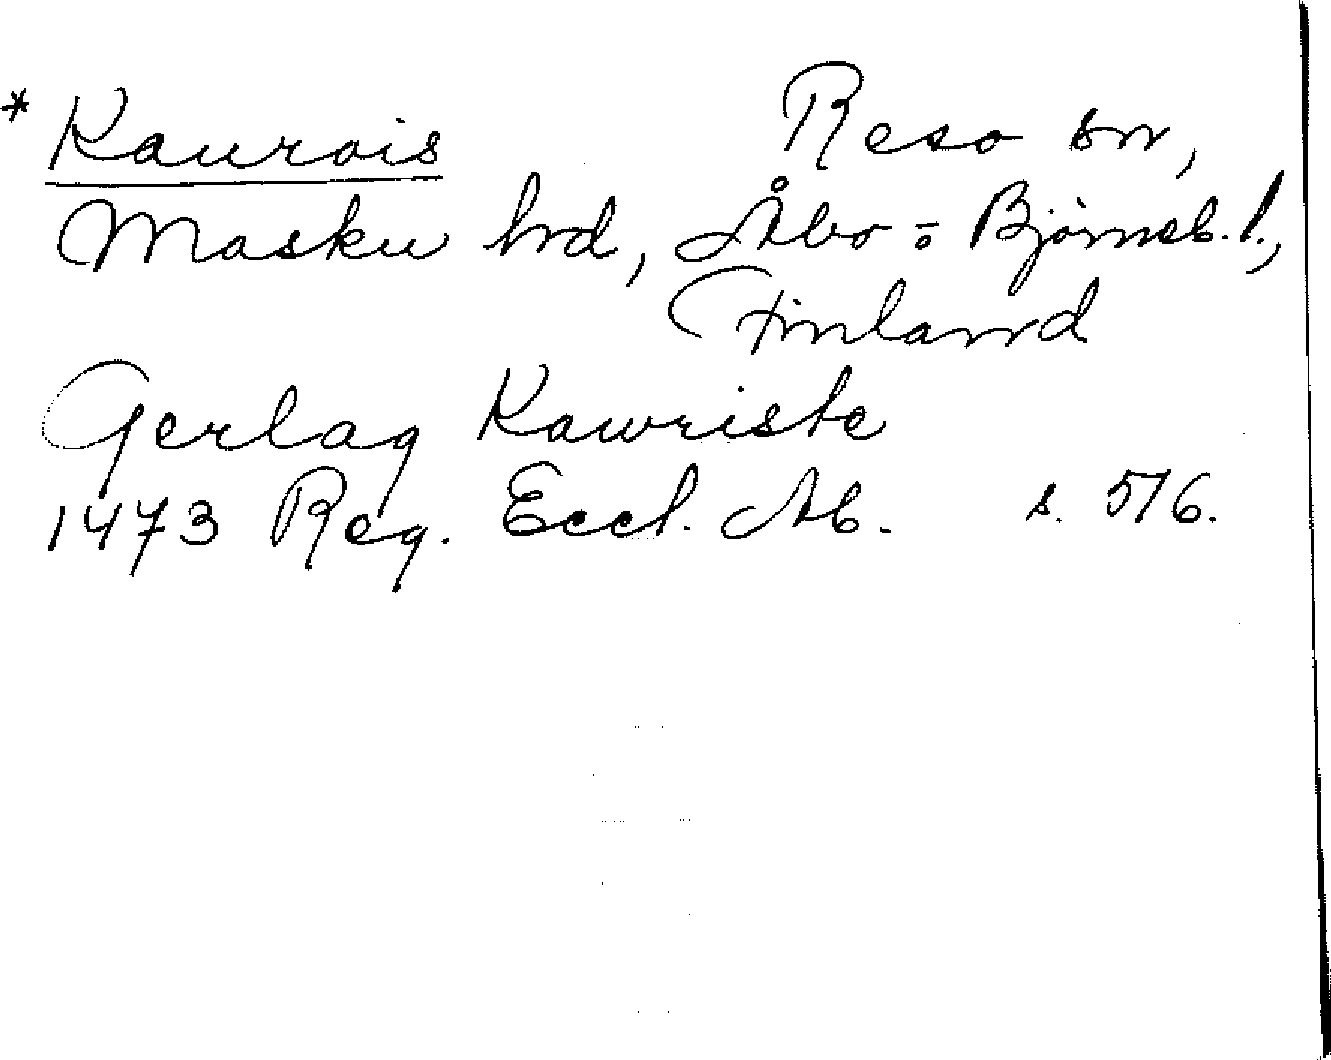 * Kaurois Reso sn,
Masku hrd, Åbo - o Björneb. l.,
Finland
Gerlag Kawriste
1473 Reg. Eccl. Ab. s. 516.